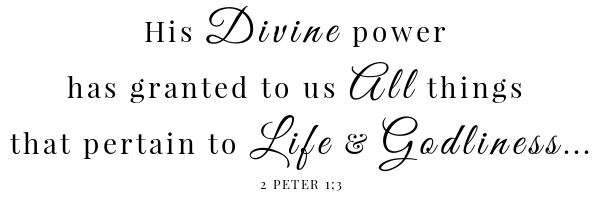 His Divine power
has granted to us All things
that pertain to Life & Godliness...
2 PETER 1;3